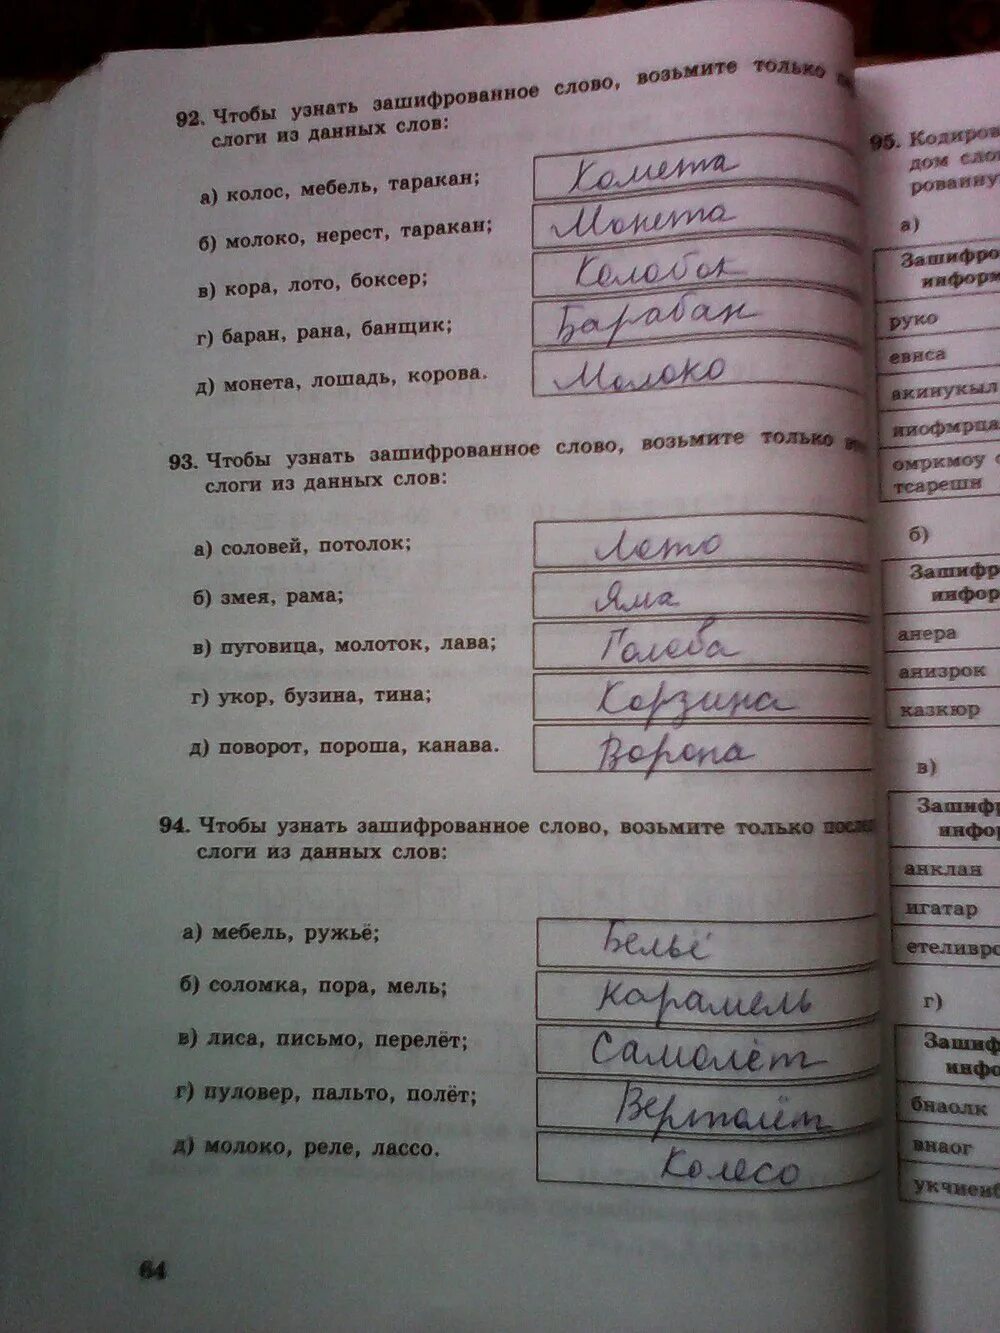 92. Чтобы узнать зашифрованное слово, возьмите только
слоги из данных слов:
а) колос, мебель, таракан;
Комета
б) молоко, нерест, таракан;
Монета
в) кора, лото, боксер;
Колобок
г) баран, рана, банщик;
Барабан
д) монета, лошадь, корова.
Молоко
93. Чтобы узнать зашифрованное слово, возьмите только
слоги из данных слов:
а) соловей, потолок;
Лото
б) змея, рама;
Яма
в) пуговица, молоток, лава;
Голова
г) укор, бузина, тина;
Корзина
д) поворот, пороша, канава.
Ворона
94. Чтобы узнать зашифрованное слово, возьмите только после
слоги из данных слов:
а) мебель, ружьё;
Бельё
б) соломка, пора, мель;
Карамель
в) лиса, письмо, перелёт;
Самолёт
г) пуловер, пальто, полёт;
Вертолёт
д) молоко, реле, лассо.
Колесо
64
95. Кодиров
дом сло
рованну
а)
Зашифро
информ
руко
евиса
акинукыл
ниофмрца
омркмоу с
тсарешн
б)
Зашифр
инфор
анера
анизрок
казкюр
в)
Зашифр
инфор
анклан
игатар
етеливро
г)
Зашиф
инфо
бнаолк
внаог
укчиенб